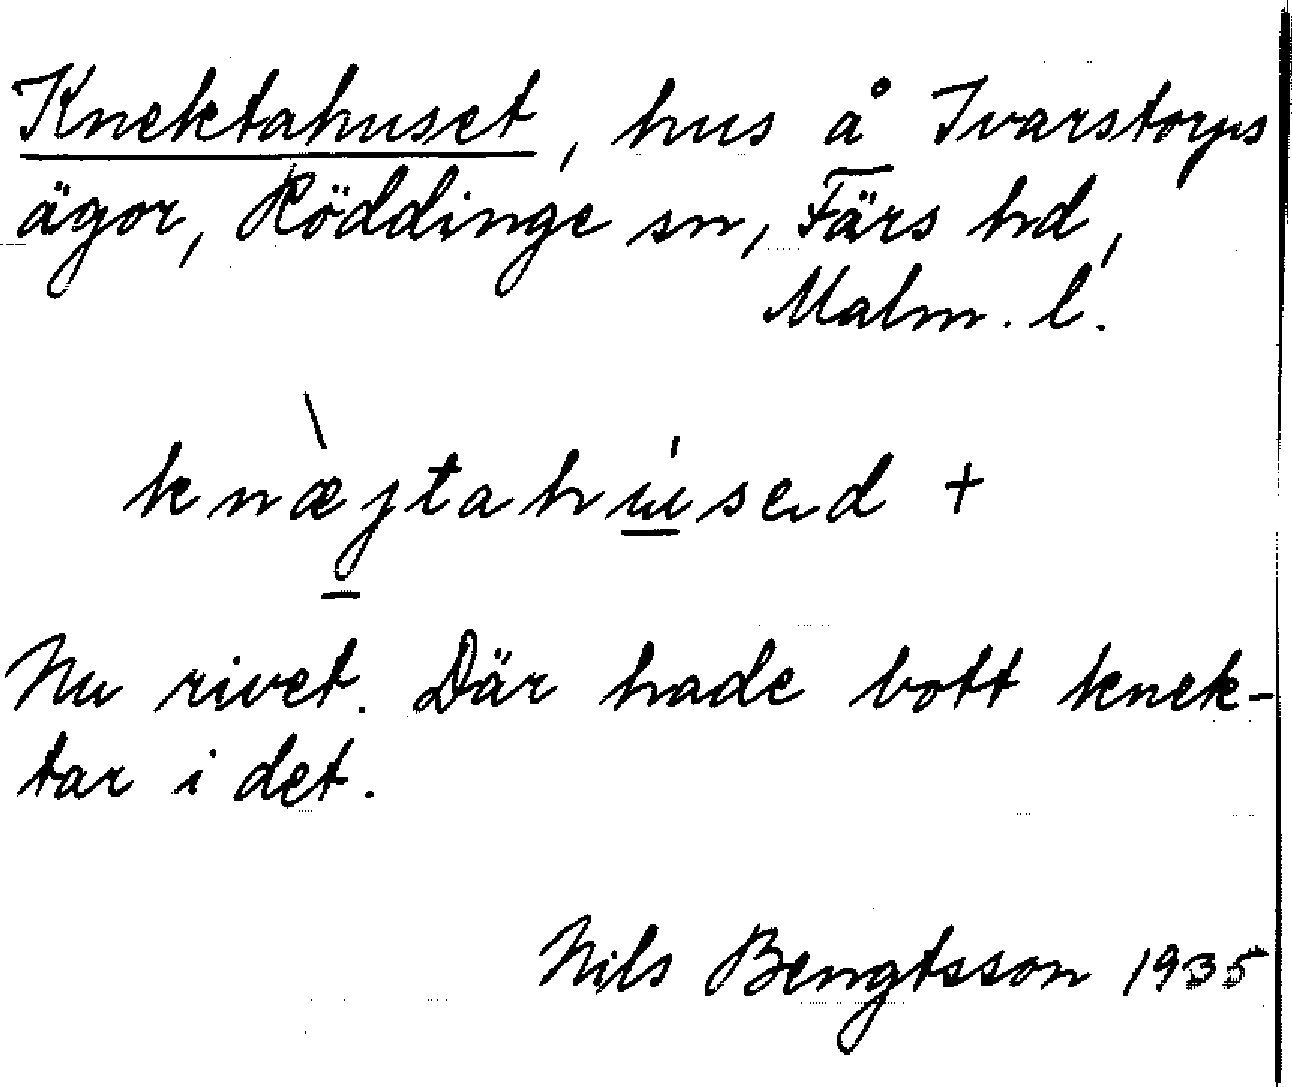 Knektahuset, hus å Ivarstorps
ägor, Röddinge sn, Färs hd,
Malm. l.
knæjtahúsed +
Nu rivet. Där hade bott knek-
tar i det.
Nils Bengtsson 1935